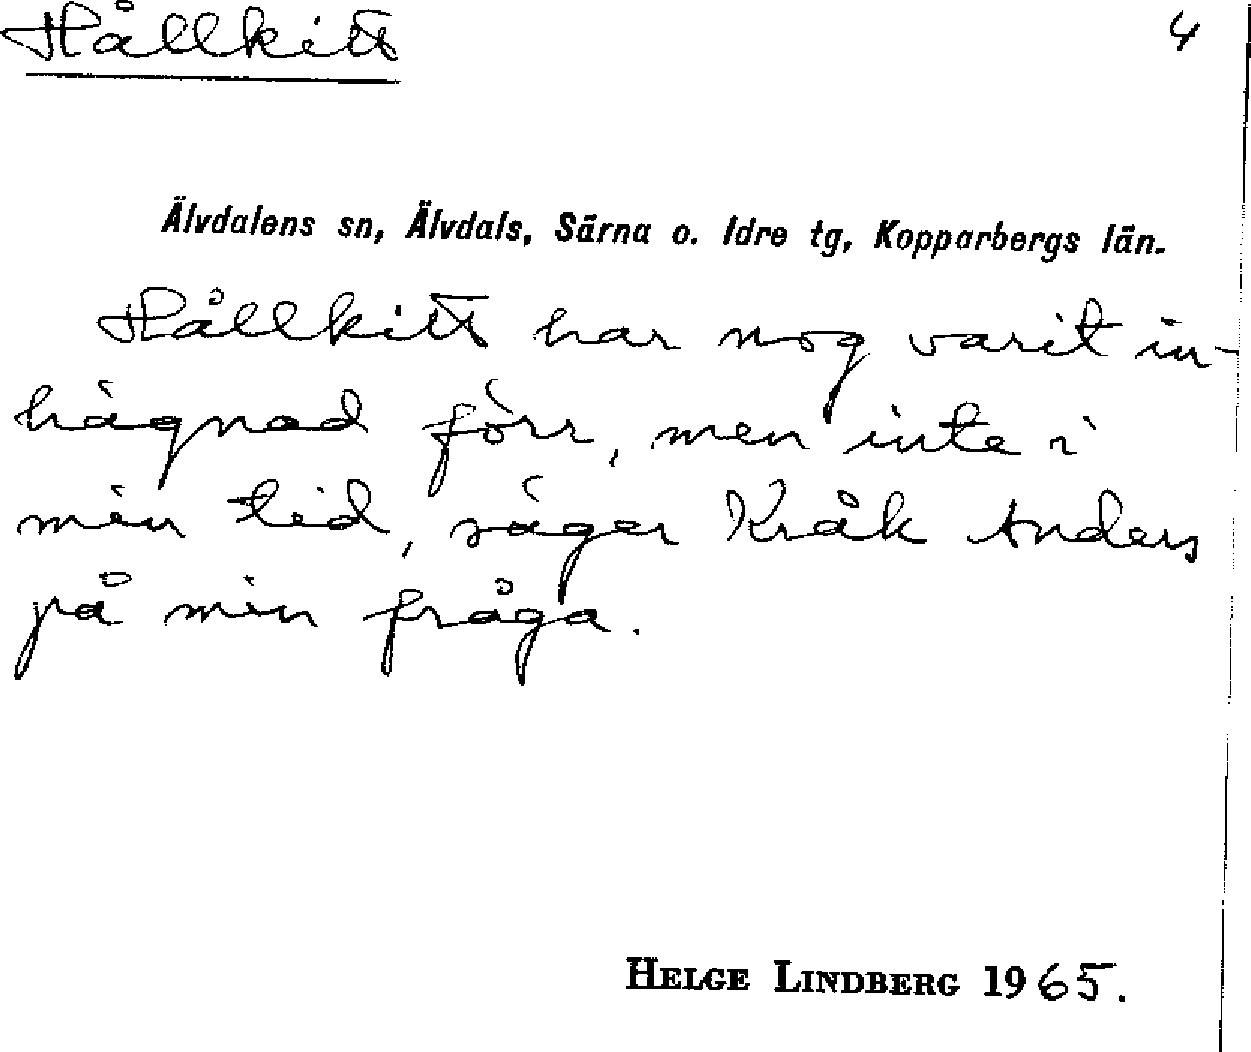 Hållkitt 4
Älvdalens sn, Älvdals, Särna o. Idre tg, Kopparbergs län.
Hållkitt har nog varit in-
hägnad förr, men inte i
min tid, säger Kråk Anders
på min fråga.
HELGE LINDBERG 1965.